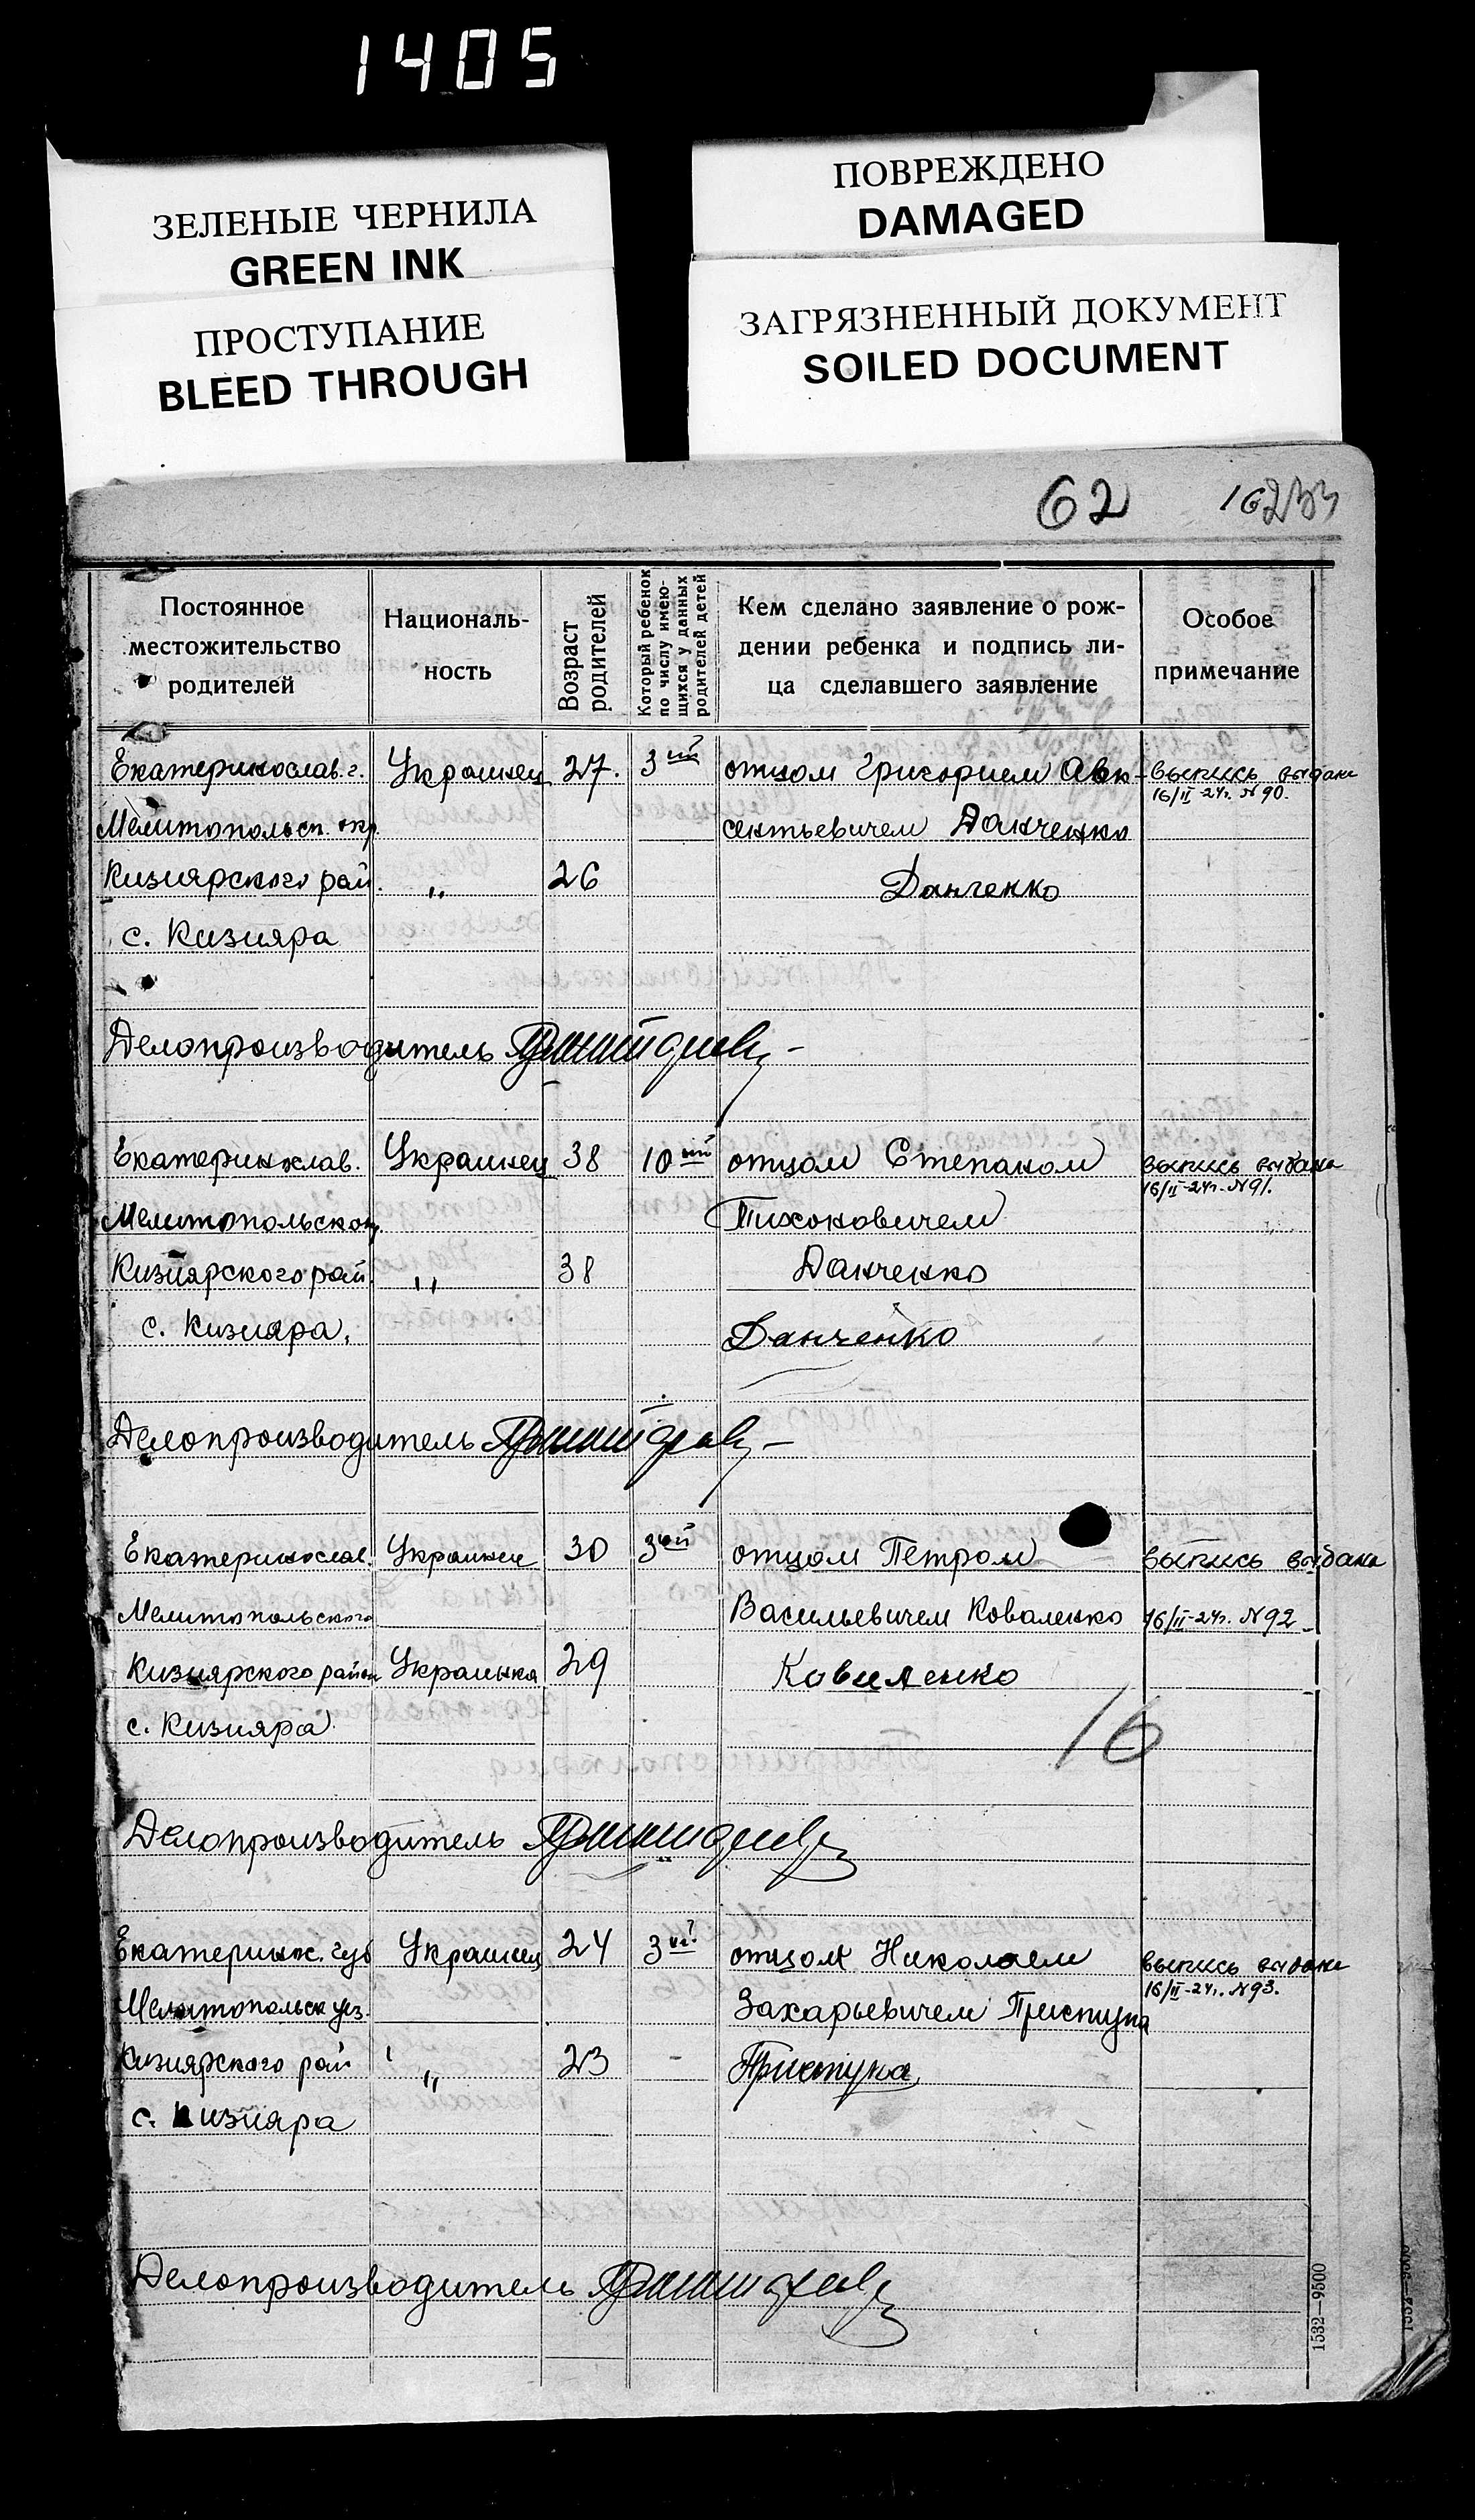 1405
ЗЕЛЕНЫЕ ЧЕРНИЛА
GREEN INK
ПРОСТУПАНИЕ
BLEED THROUGH
ПОВРЕЖДЕНО
DAMAGED
ЗАГРЯЗНЕННЫЙ ДОКУМЕНТ
SOILED DOCUMENT
62
Постоянное
местожительство
родителей
Националь-
ность
Возраст
родителей
Который ребенок
по числу имею-
щихся у данных
родителей детей
Кем сделано заявление о рож-
дении ребенка и подпись ли-
ца сделавшего заявление
Особое
примечание
Екатеринослав. г. Украинец 27. 3ий отцом Григорием Авк- выпись выдана
16/II-24г. N 90.
Мелитопольск. окр. сентьевичем Данченко
Кизиярского рай. " 26 Данченко
с. Кизияра
Делопроизводитель
Екатеринослав. Украинец 38 10ый отцом Степаном выпись выдана
16/II-24г. N 91.
Мелитопольск окр. Тихоновичем
Кизиярского рай. " 38 Данченко
с. Кизияра. Данченко
Делопроизводитель
Екатеринослав. Украинец 30 3ий отцом Петром выпись выдана
Мелитопольского Васильевичем Коваленко 16/II-24г. N 92
Кизиярского район Украинка 29 Коваленко
с. Кизияра
16
Делопроизводитель
Екатеринос. губ Украинец 24 3ий отцом Николаем выпись выдана
16/II-24г. N 93.
Мелитопольск уез. Захарьевичем Приступа
Кизиярского рай " 23 - Приступа
с. Кизияра
Делопроизводитель
1532—9500